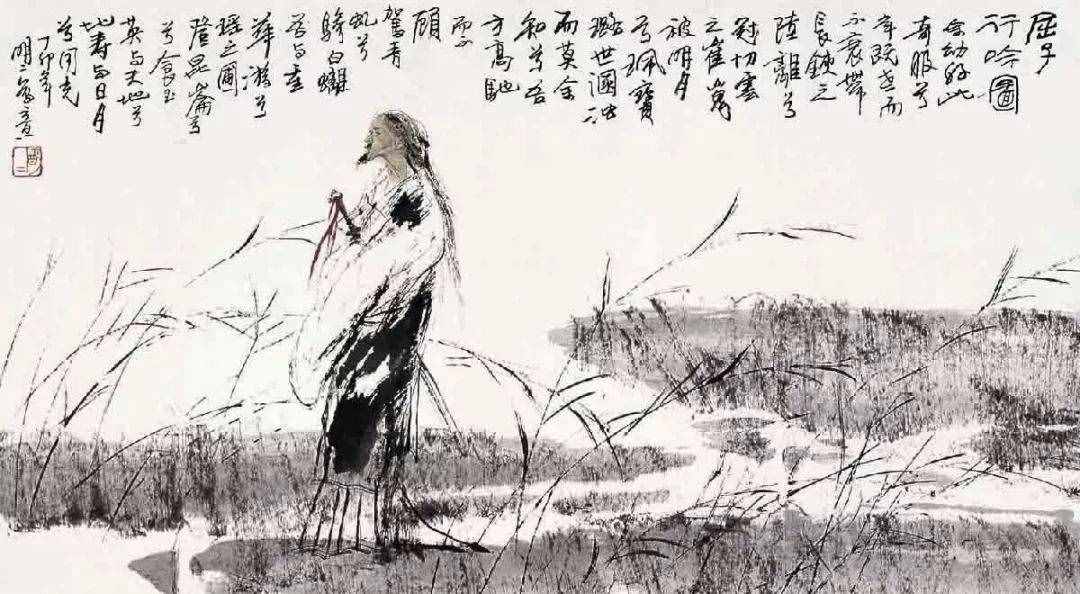 屈子
行吟圖
余幼好此
奇服兮
年既老而
不衰帶
長鋏之
陸離兮
冠切雲
之崔嵬
被明月
兮珮寶
璐世溷浊
而莫余
知兮吾
方高馳
而不
顧
駕青
虬兮
驂白螭
吾与重
華游兮
瑶之圃
登崑崙
兮食玉
英与天地兮
比寿与日月
兮同光
丁卯年
明